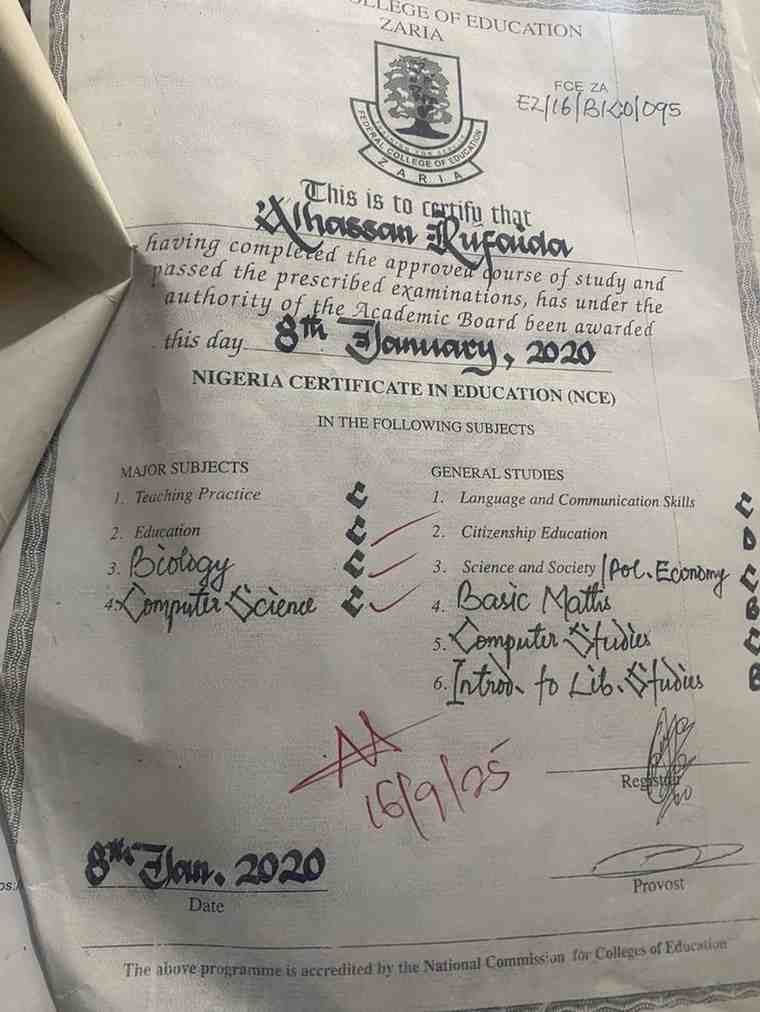 COLLEGE OF EDUCATION
ZARIA
FEDERAL COLLEGE OF EDUCATION
ZARIA
FCE ZA
EZ/16/BICO/095
This is to certify that
Alhassan Rufaida
having completed the approved course of study and
passed the prescribed examinations, has under the
authority of the Academic Board been awarded
this day 8th January, 2020
NIGERIA CERTIFICATE IN EDUCATION (NCE)
IN THE FOLLOWING SUBJECTS
MAJOR SUBJECTS
1. Teaching Practice C
2. Education C
3. Biology C
4. Computer Science C
GENERAL STUDIES
1. Language and Communication Skills C
2. Citizenship Education D
3. Science and Society/Pol. Economy C
4. Basic Maths B
5. Computer Studies C
6. Introd. to Lib. Studies B
16/9/25
Registrar
8th Jan. 2020
Date
Provost
The above programme is accredited by the National Commission for Colleges of Education